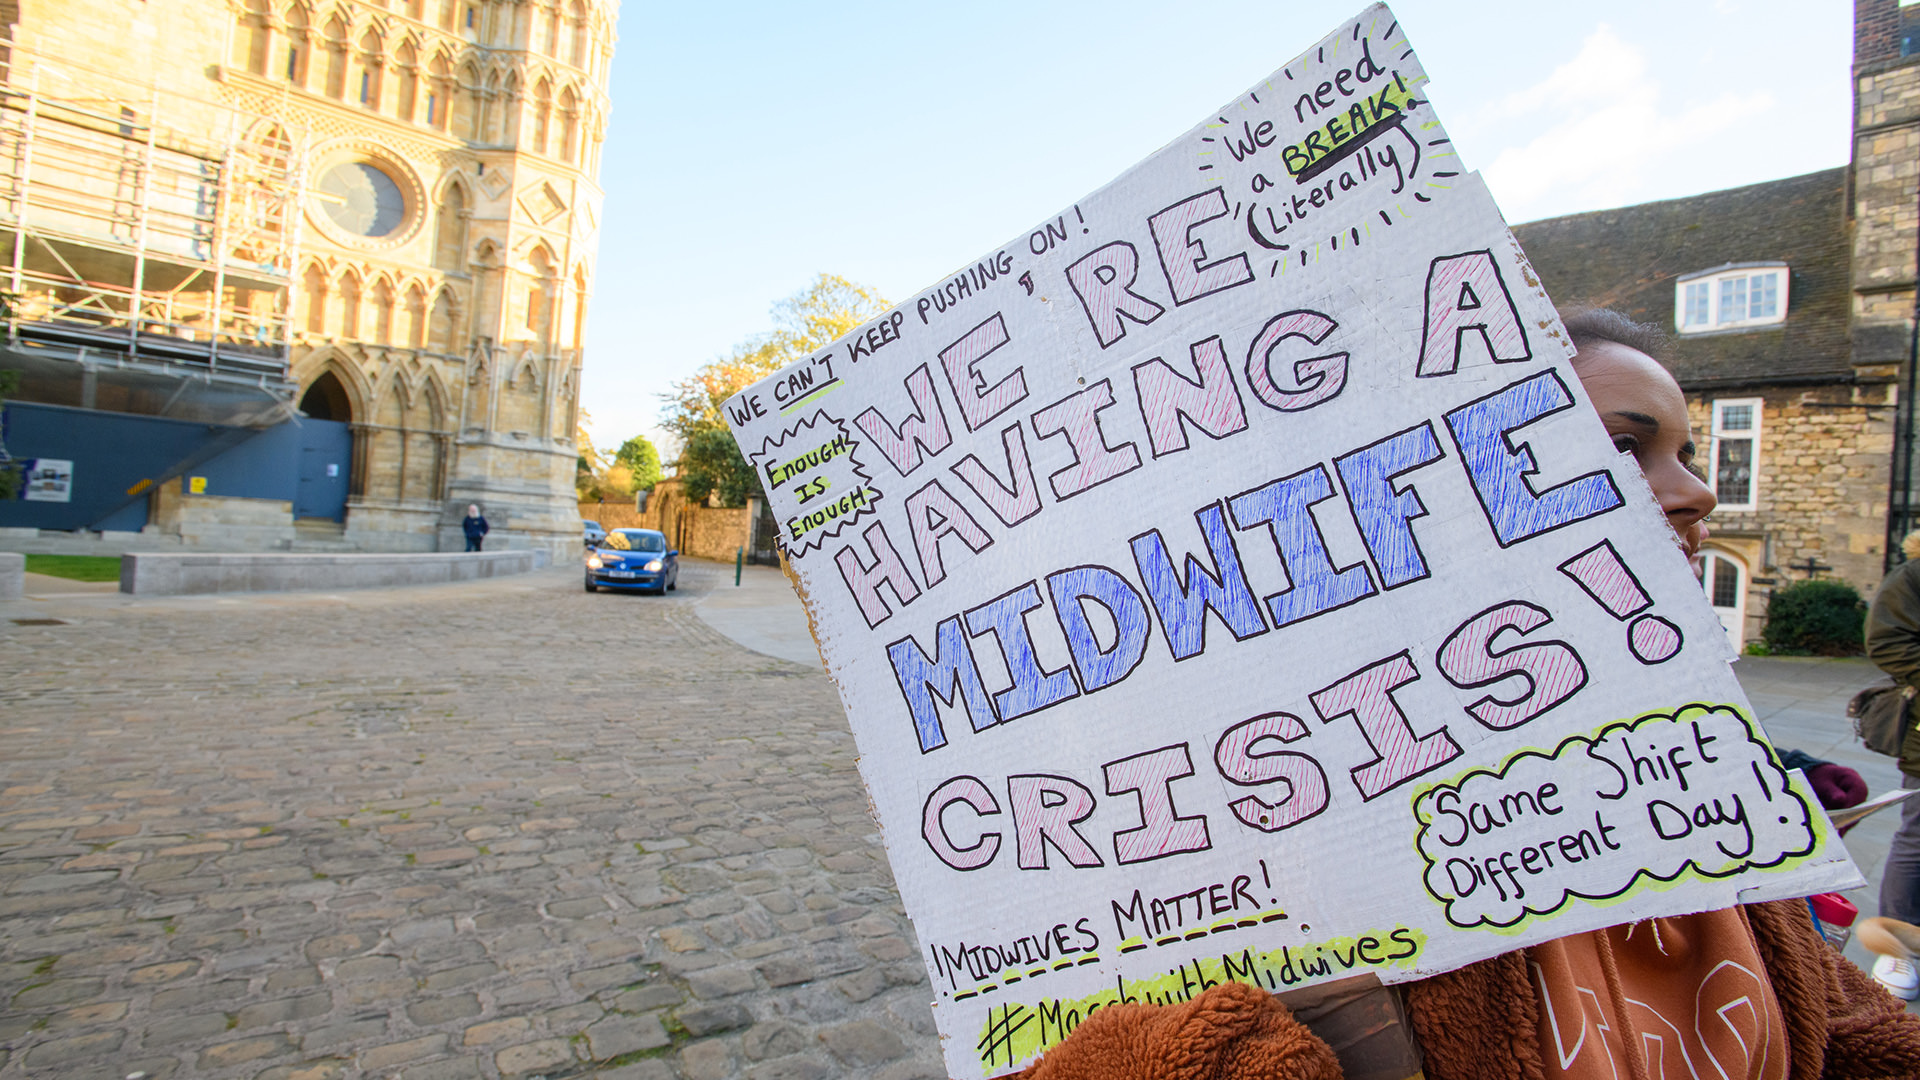 WE CAN'T KEEP PUSHING ON!
We need
a BREAK!
(Literally)
ENOUGH
IS
ENOUGH
WE'RE
HAVING A
MIDWIFE
CRISIS!
Same Shift
Different Day!
!MIDWIVES MATTER!
#MarchwithMidwives